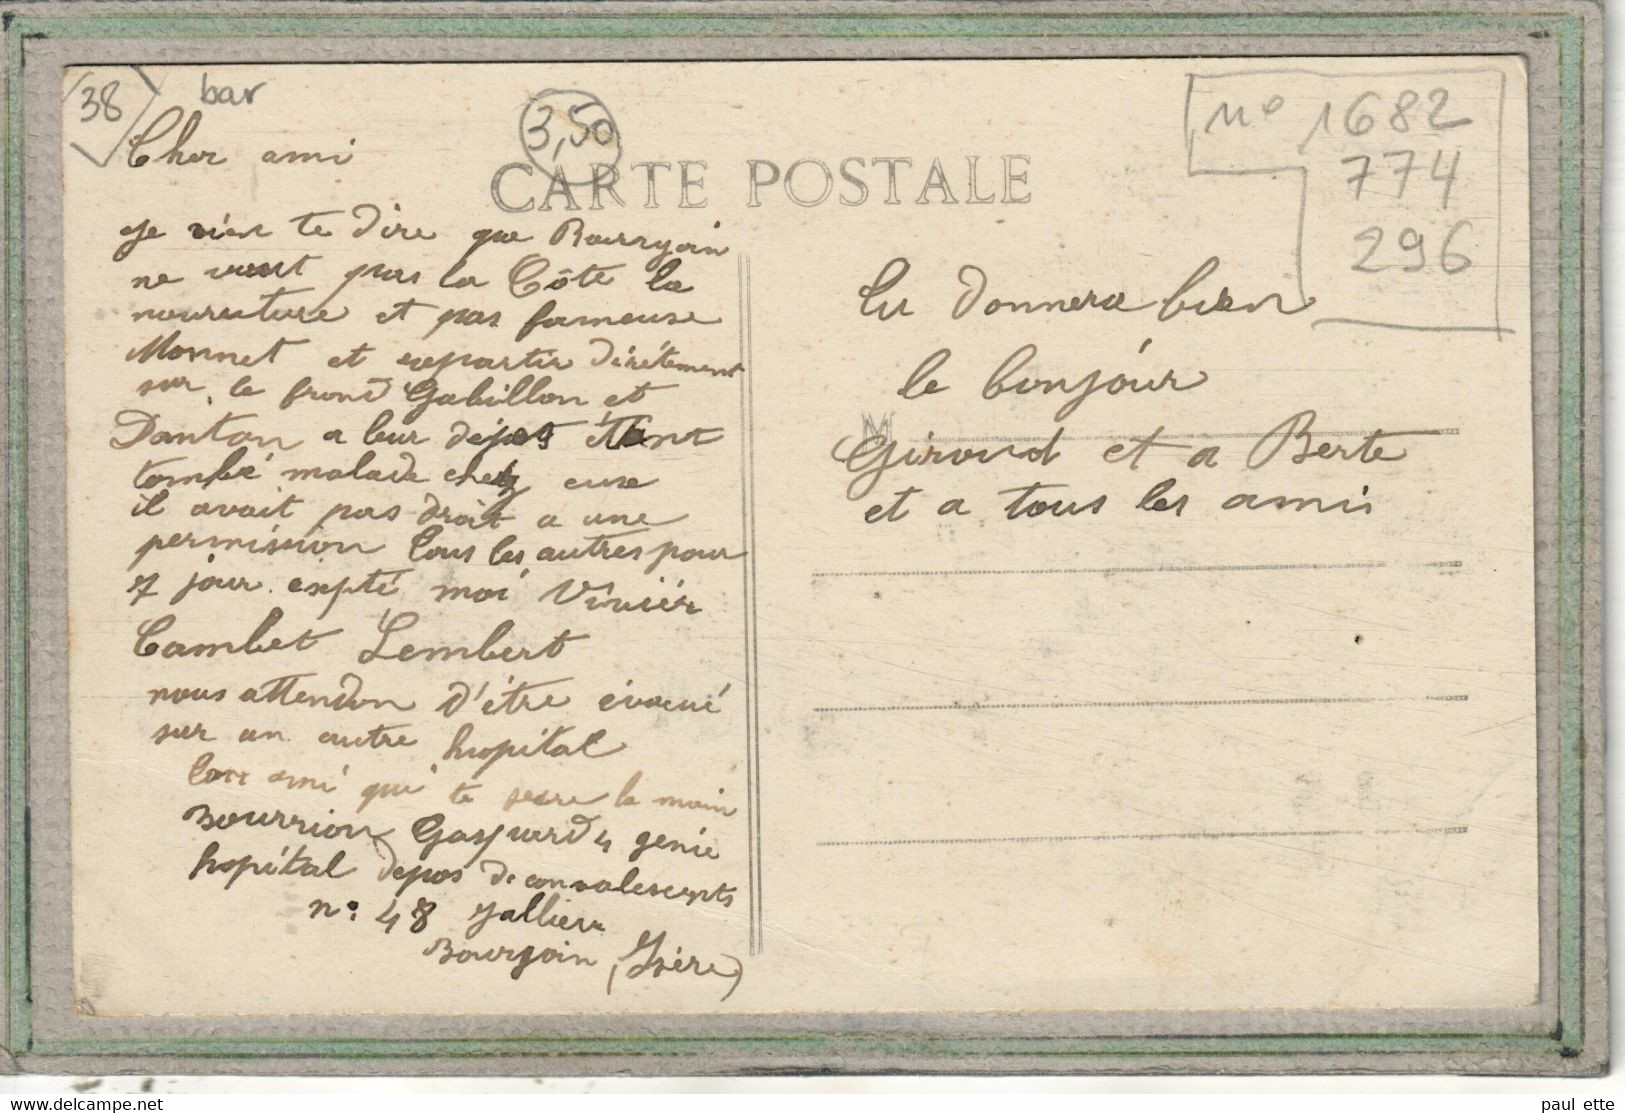 38
bar
3,50
CARTE POSTALE
No 1682
774
296
Cher ami
Je vien te dire que Bourgoin
ne vaut pas la Côte la
nouruture et pas fameuse
Monnet et repartir dirétement
sur le front Gabillon et
Danton a leur dépot étant
tombé malade chez euse
il avait pas droit a une
permission tous les autres pour
7 jour expté moi Vivier
Cambet Lembert
nous attendon d'étre évacué
sur un autre hopital
ton ami qui te serre la main
Bourrion Gaspard 4 genie
hopital depos de convalescents
n: 48 Jallieu
Bourgoin (Isère)
tu donnera bien
le bonjour
M
Giroud et a Berte
et a tous les ami
delcampe.net
paul ette